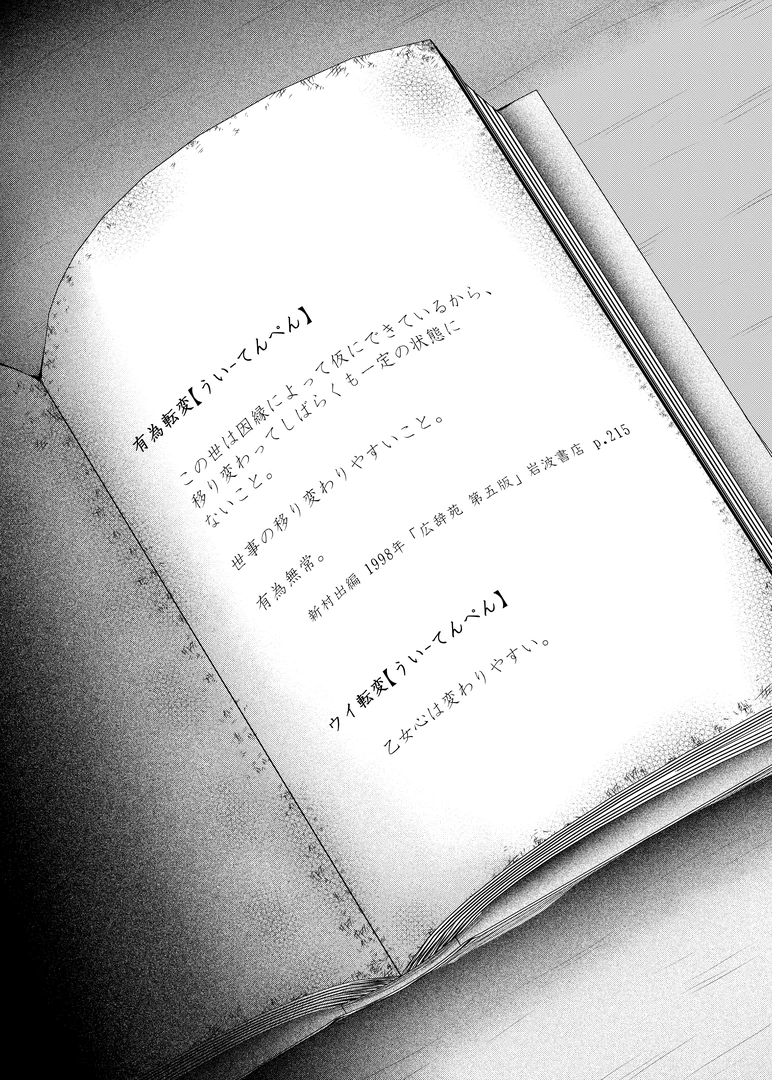 有為転変【うい−てんぺん】
この世は因縁によって仮にできているから、
移り変わってしばらくも一定の状態に
ないこと。
世事の移り変わりやすいこと。
有為無常。
新村出編 1998年「広辞苑 第五版」岩波書店 p.215
ウイ転変【うい−てんぺん】
乙女心は変わりやすい。